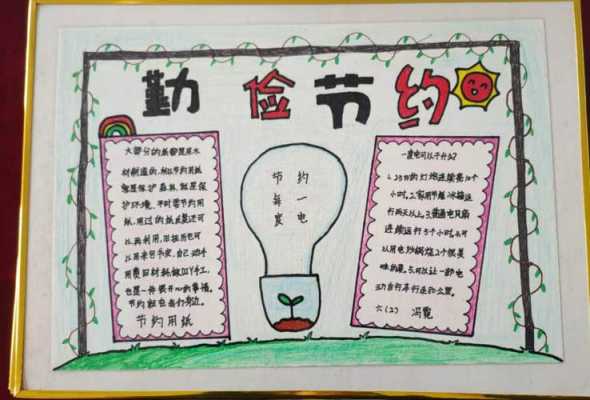 勤俭节约
大部分的纸都是用木
材制造的，所以节约用纸
就是保护森林，就是保
护环境。平时要节约用
纸，用过的纸反面还可
以再利用，旧挂历也可
以用来包书皮，自己动手
用废旧材料做加丫手工，
也是一件很开心的事情。
节约就在我们身边。
节约用纸
节约
每一
度电
一度电可以干什么？
1.25W的灯炮连续亮40个
小时。2.家用节能冰箱运
行两天以上。3.普通电风扇
连续运行15个小时。4.可
以用电炒锅烧2个很美
味的菜。5.可以让一部电
动自行车行走80公里。
六(2) 冯霓